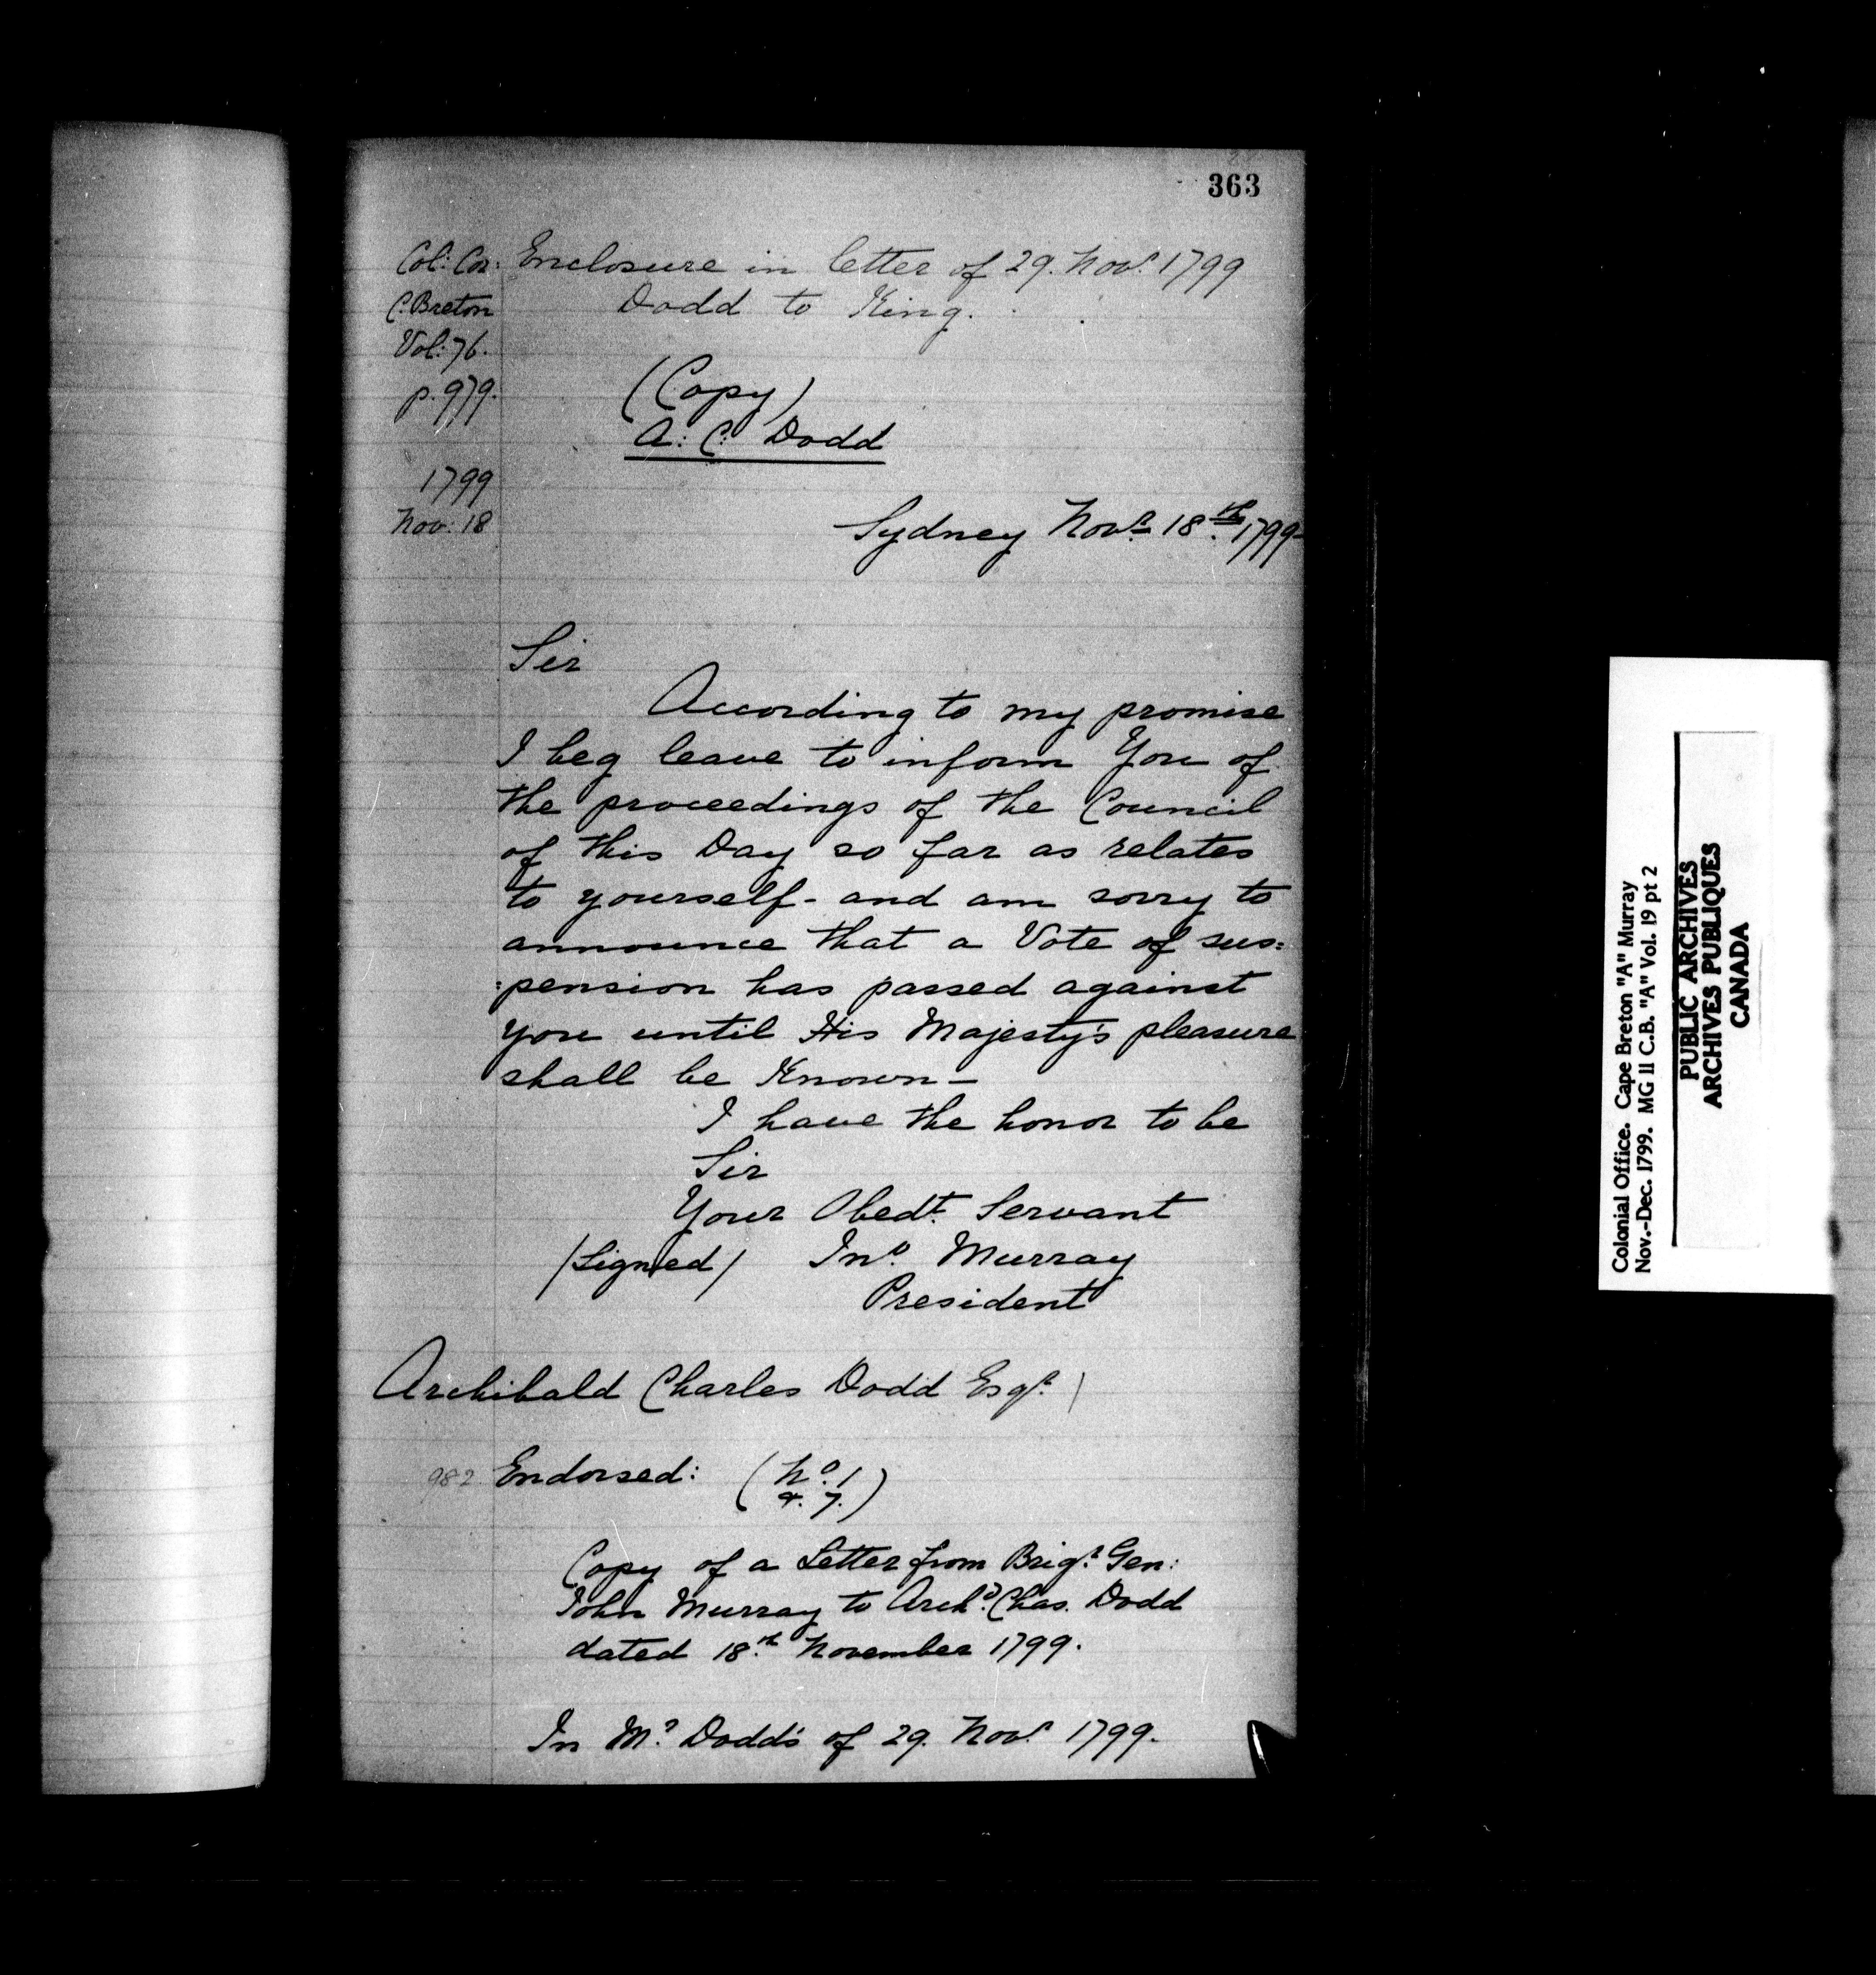 363
Col: Cor: Enclosure in letter of 29. Novr. 1799
C. Breton Dodd to King.
Vol: 76.
p. 979.
(Copy)
A: C: Dodd
1799
Nov: 18
Sydney Novr. 18th. 1799-
Sir
According to my promise
I beg leave to inform You of
the proceedings of the Council
of this Day so far as relates
to yourself - and am sorry to
announce that a Vote of sus:
:pension has passed against
you until His Majesty's pleasure
shall be Known -
I have the honor to be
Sir
Your Obedt. Servant
/Signed/ Jno. Murray
President
Archibald Charles Dodd Esqr.
982 Endorsed: (No. 1
7.)
Copy of a Letter from Brigr. Gen:
John Murray to Archd. Chas. Dodd
dated 18th. November 1799.
In Mr. Dodd's of 29. Novr. 1799.
Colonial Office. Cape Breton "A" Murray
Nov.-Dec. 1799. MG 11 C.B. "A" Vol. 19 pt 2
PUBLIC ARCHIVES
ARCHIVES PUBLIQUES
CANADA